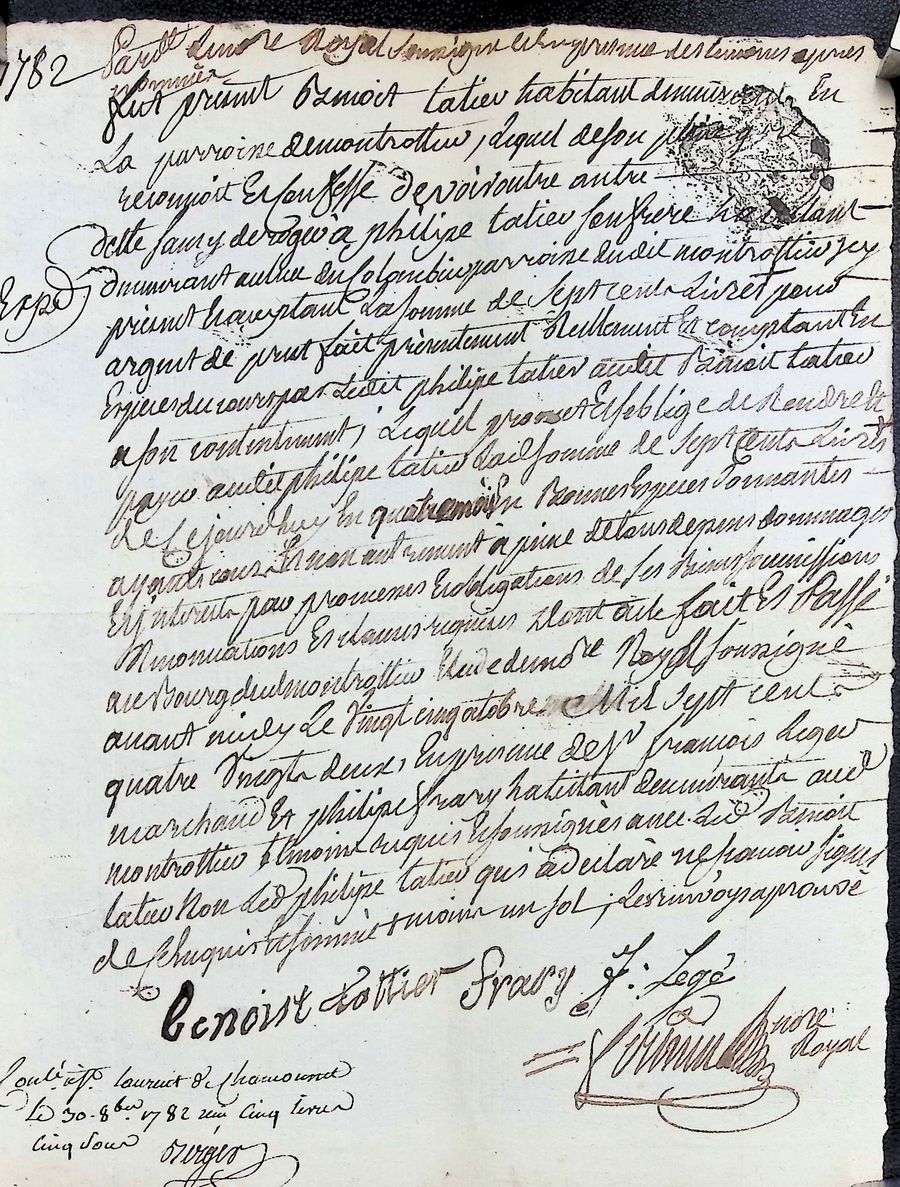 1782
Pardt Le nore Royal soussigné & En presence des temoins apres
nommés
fut présent Benoist tatier habitant demeurant En
La parroisse de montrottier, Lequel de son plein gré
reconnoit Et Confesse devoir outre autre
dette a philipe tatier son frere habitant
demeurant au lieu du Colombier parroisse dudit montrottier jcy
present & acceptant La somme de Sept cents Livres pour
argent de pret fait presentement Reellement Et comptant En
Especes du cours par Ledit philipe tatier audit Benoit tatier
a son contentement, Lequel promet Et soblige de Rendre Et
payer audit philipe tatier Lad somme de Sept Cents Livres
de Cejourdhuy En quatre mois En Bonnes Especes Sonnantes
ayants cours Et non autrement à peine de tous depens dommages
Et interets par promesses Et obligations de ses Biens soumissions
Renonciations Et clauses requises Dont acte fait Et Passé
au Bourg dud montrottier Etude de nore Royal soussigné
avant midy Le Vingt cinq octobre Mil Sept cents
quatre Vingts deux, En presence de Sr françois Legé
marchand Et philipe frary habitants demeurants aud
montrottier temoins requis Et soussignés avec Led Benoit
tatier Non Led philipe tatier qui a declaré ne savoir signer
de Ce Enquis Et sommé moins un sol, Les renvoys aprouvé
Exped
Benoist tattier frary f: Legé
nore
Royal
Conlé à St Laurent de Chamousset
Le 30 8bre 1782 reçu Cinq Livres
Cinq Sous
Berger